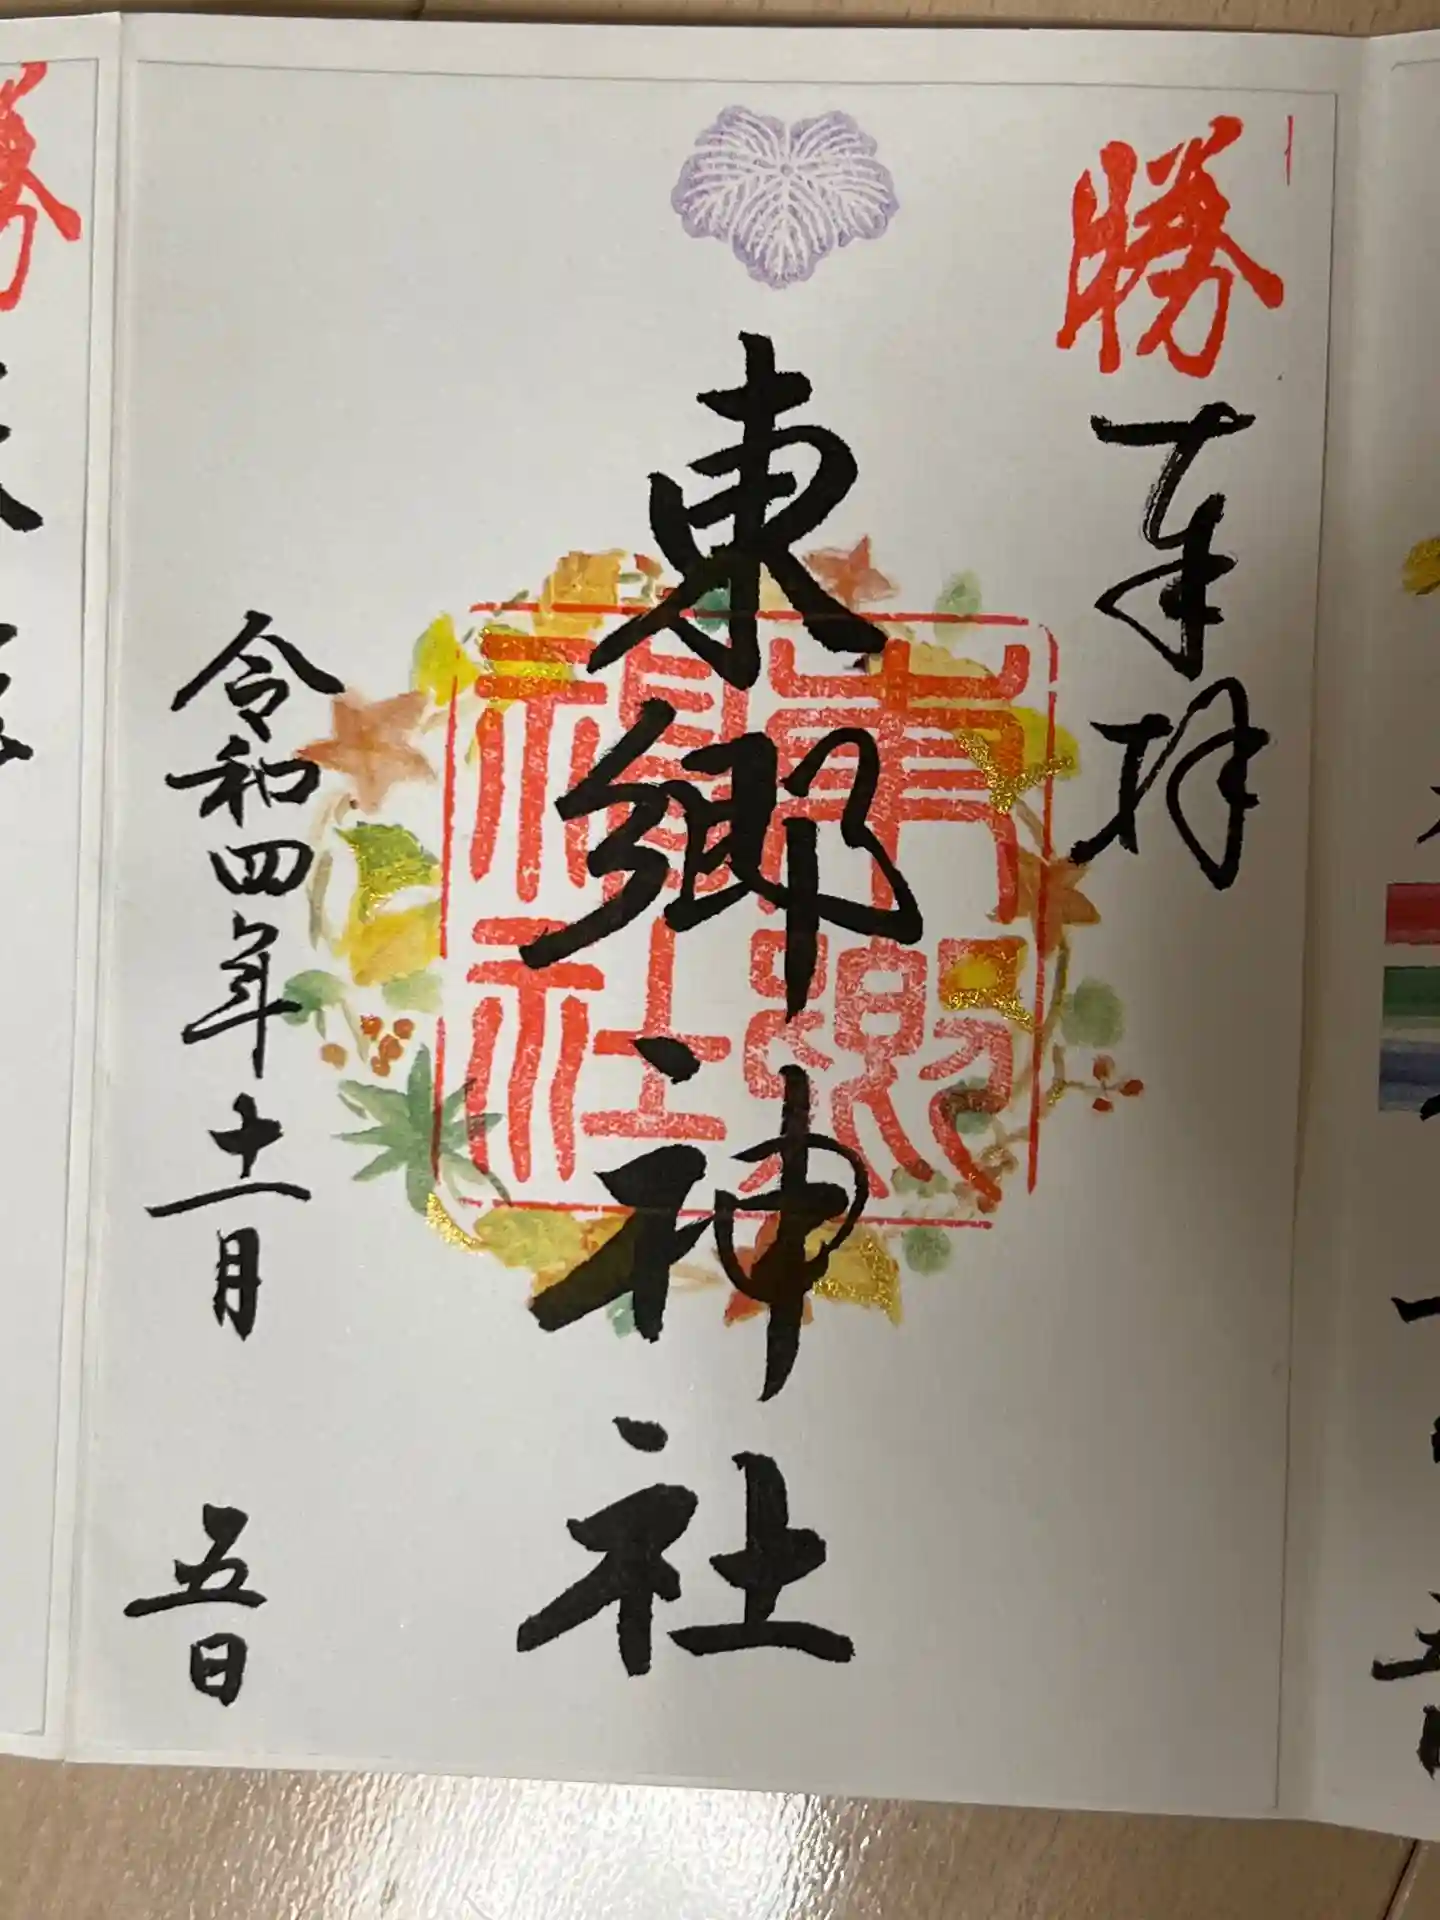 勝
奉拝
東郷神社
東郷神社
令和四年十一月五日
勝